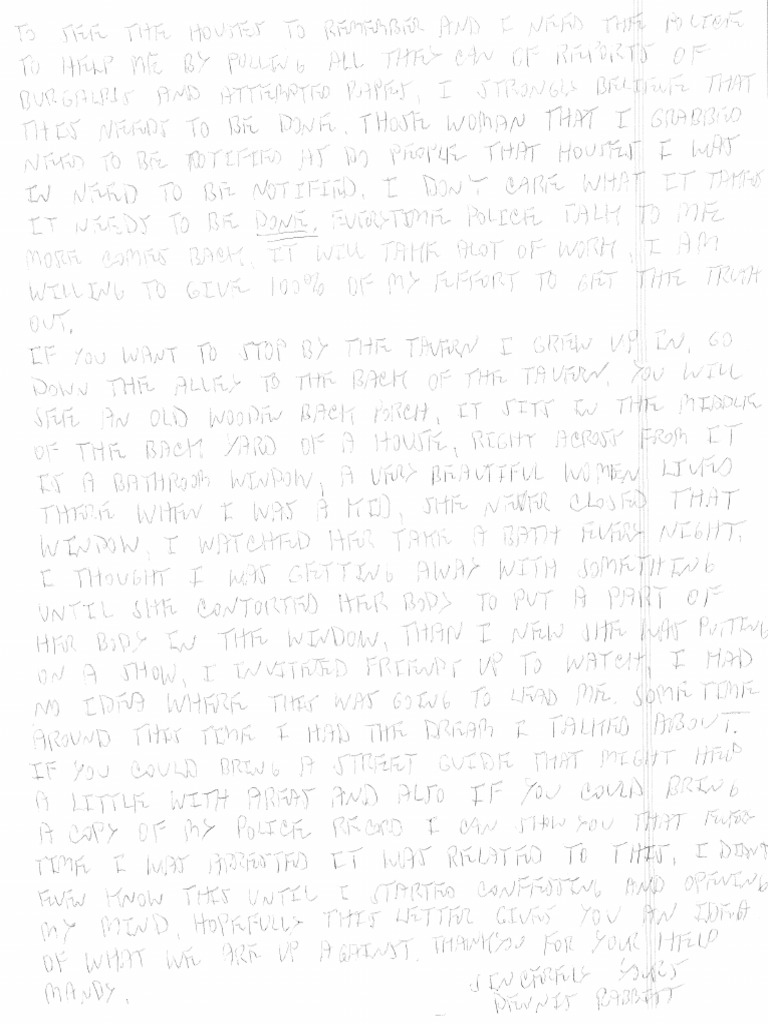 TO SEE THE HOUSES TO REMEMBER AND I NEED THE POLICE
TO HELP ME BY PULLING ALL THEY CAN OF REPORTS OF
BURGALRIS AND ATTEMPTED RAPES, I STRONGLY BELIEVE THAT
THIS NEEDS TO BE DONE. THOSE WOMAN THAT I GRABBED
NEED TO BE NOTIFIED AS DO PEOPLE THAT HOUSES I WAS
IN NEED TO BE NOTIFIED. I DON'T CARE WHAT IT TAKES
IT NEEDS TO BE DONE. EVERYTIME POLICE TALK TO ME
MORE COMES BACK. IT WILL TAKE ALOT OF WORK, I AM
WILLING TO GIVE 100% OF MY EFFORT TO GET THE TRUTH
OUT.
IF YOU WANT TO STOP BY THE TAVERN I GREW UP IN, GO
DOWN THE ALLEY TO THE BACK OF THE TAVERN. YOU WILL
SEE AN OLD WOODEN BACK PORCH, IT SITS IN THE MIDDLE
OF THE BACK YARD OF A HOUSE, RIGHT ACROSS FROM IT
IS A BATHROOM WINDOW, A VERY BEAUTIFUL WOMEN LIVED
THERE WHEN I WAS A KID, SHE NEVER CLOSED THAT
WINDOW, I WATCHED HER TAKE A BATH EVERY NIGHT.
I THOUGHT I WAS GETTING AWAY WITH SOMETHING
UNTIL SHE CONTORTED HER BODY TO PUT A PART OF
HER BODY IN THE WINDOW, THAN I NEW SHE WAS PUTTING
ON A SHOW, I INVITED FRIENDS UP TO WATCH, I HAD
NO IDEA WHERE THIS WAS GOING TO LEAD ME. SOMETIME
AROUND THIS TIME I HAD THE DREAM I TALKED ABOUT.
IF YOU COULD BRING A STREET GUIDE THAT MIGHT HELP
A LITTLE WITH AREAS AND ALSO IF YOU COULD BRING
A COPY OF MY POLICE RECORD I CAN SHOW YOU THAT EVERY
TIME I WAS ARRESTED IT WAS RELATED TO THIS, I DIDN'T
EVEN KNOW THIS UNTIL I STARTED CONFESSING AND OPENING
MY MIND. HOPEFULLY THIS LETTER GIVES YOU AN IDEA
OF WHAT WE ARE UP AGAINST. THANKYOU FOR YOUR HELP
MANDY.
SINCERELY YOURS
DENNIS RABBITT